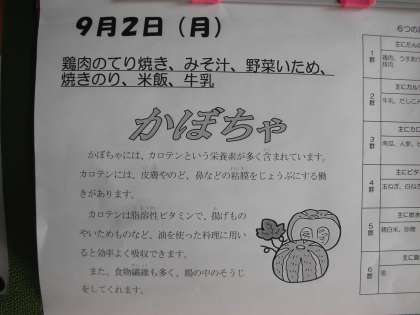 9月2日(月)
鶏肉のてり焼き、みそ汁、野菜いため、
焼きのり、米飯、牛乳
かぼちゃ
かぼちゃには、カロテンという栄養素が多く含まれています。
カロテンには、皮膚やのど、鼻などの粘膜をじょうぶにする働
きがあります。
カロテンは脂溶性ビタミンで、揚げもの
やいためものなど、油を使った料理に用い
ると効率よく吸収できます。
また、食物繊維も多く、腸の中のそうじ
をしてくれます。
6つの
1
群
2
群
3
群
4
群
5
群
6
群